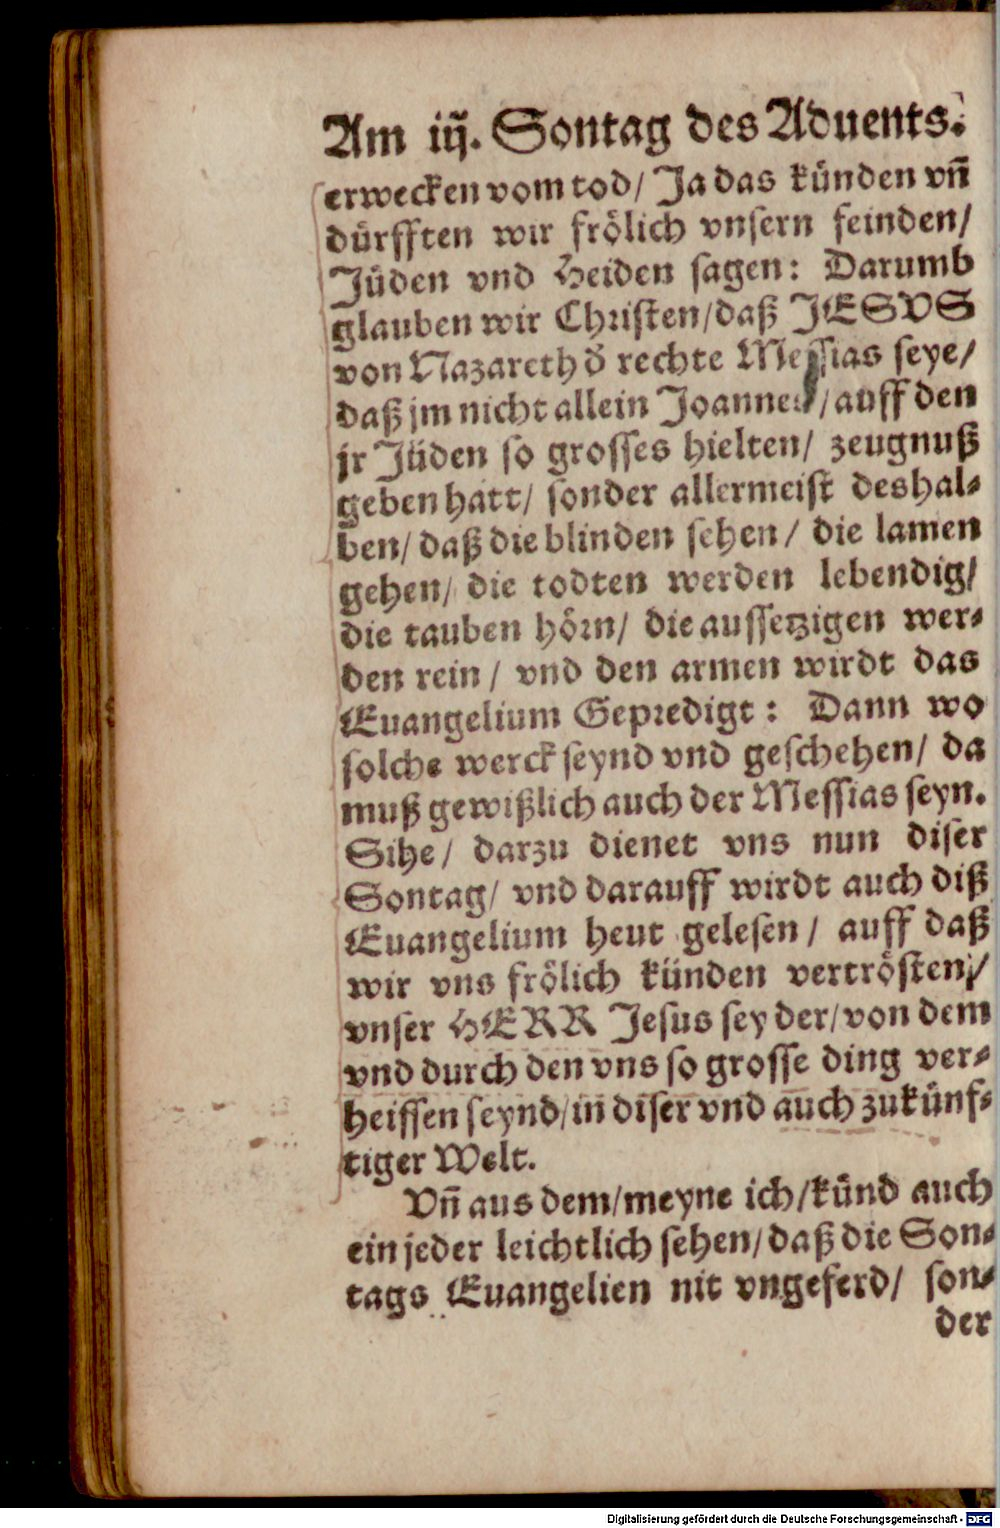 Am iij. Sontag des Aduents.
erwecken vom tod/ Ja das künden vn̄
dürfften wir frölich vnsern feinden/
Jüden vnd Heiden sagen: Darumb
glauben wir Christen/daß JESVS
von Nazareth d̕ rechte Messias seye/
daß jm nicht allein Joannes/auff den
jr Jüden so grosses hielten/ zeugnuß
geben hatt/ sonder allermeist deshal⸗
ben/ daß die blinden sehen/ die lamen
gehen/ die todten werden lebendig/
die tauben hörn/ die aussetzigen wer⸗
den rein/ vnd den armen wirdt das
Euangelium Gepredigt: Dann wo
solche werck seynd vnd geschehen/ da
muß gewißlich auch der Messias seyn.
Sihe/ darzu dienet vns nun diser
Sontag/ vnd darauff wirdt auch diß
Euangelium heut gelesen/ auff daß
wir vns frölich künden vertrösten/
vnser HERR Jesus sey der/von dem
vnd durch den vns so grosse ding ver⸗
heissen seynd/in diser vnd auch zukünf⸗
tiger Welt.
Vn̄ aus dem/meyne ich/künd auch
ein jeder leichtlich sehen/daß die Son⸗
tags Euangelien nit vngeferd/ son⸗
der
Digitalisierung gefördert durch die Deutsche Forschungsgemeinschaft - DFG